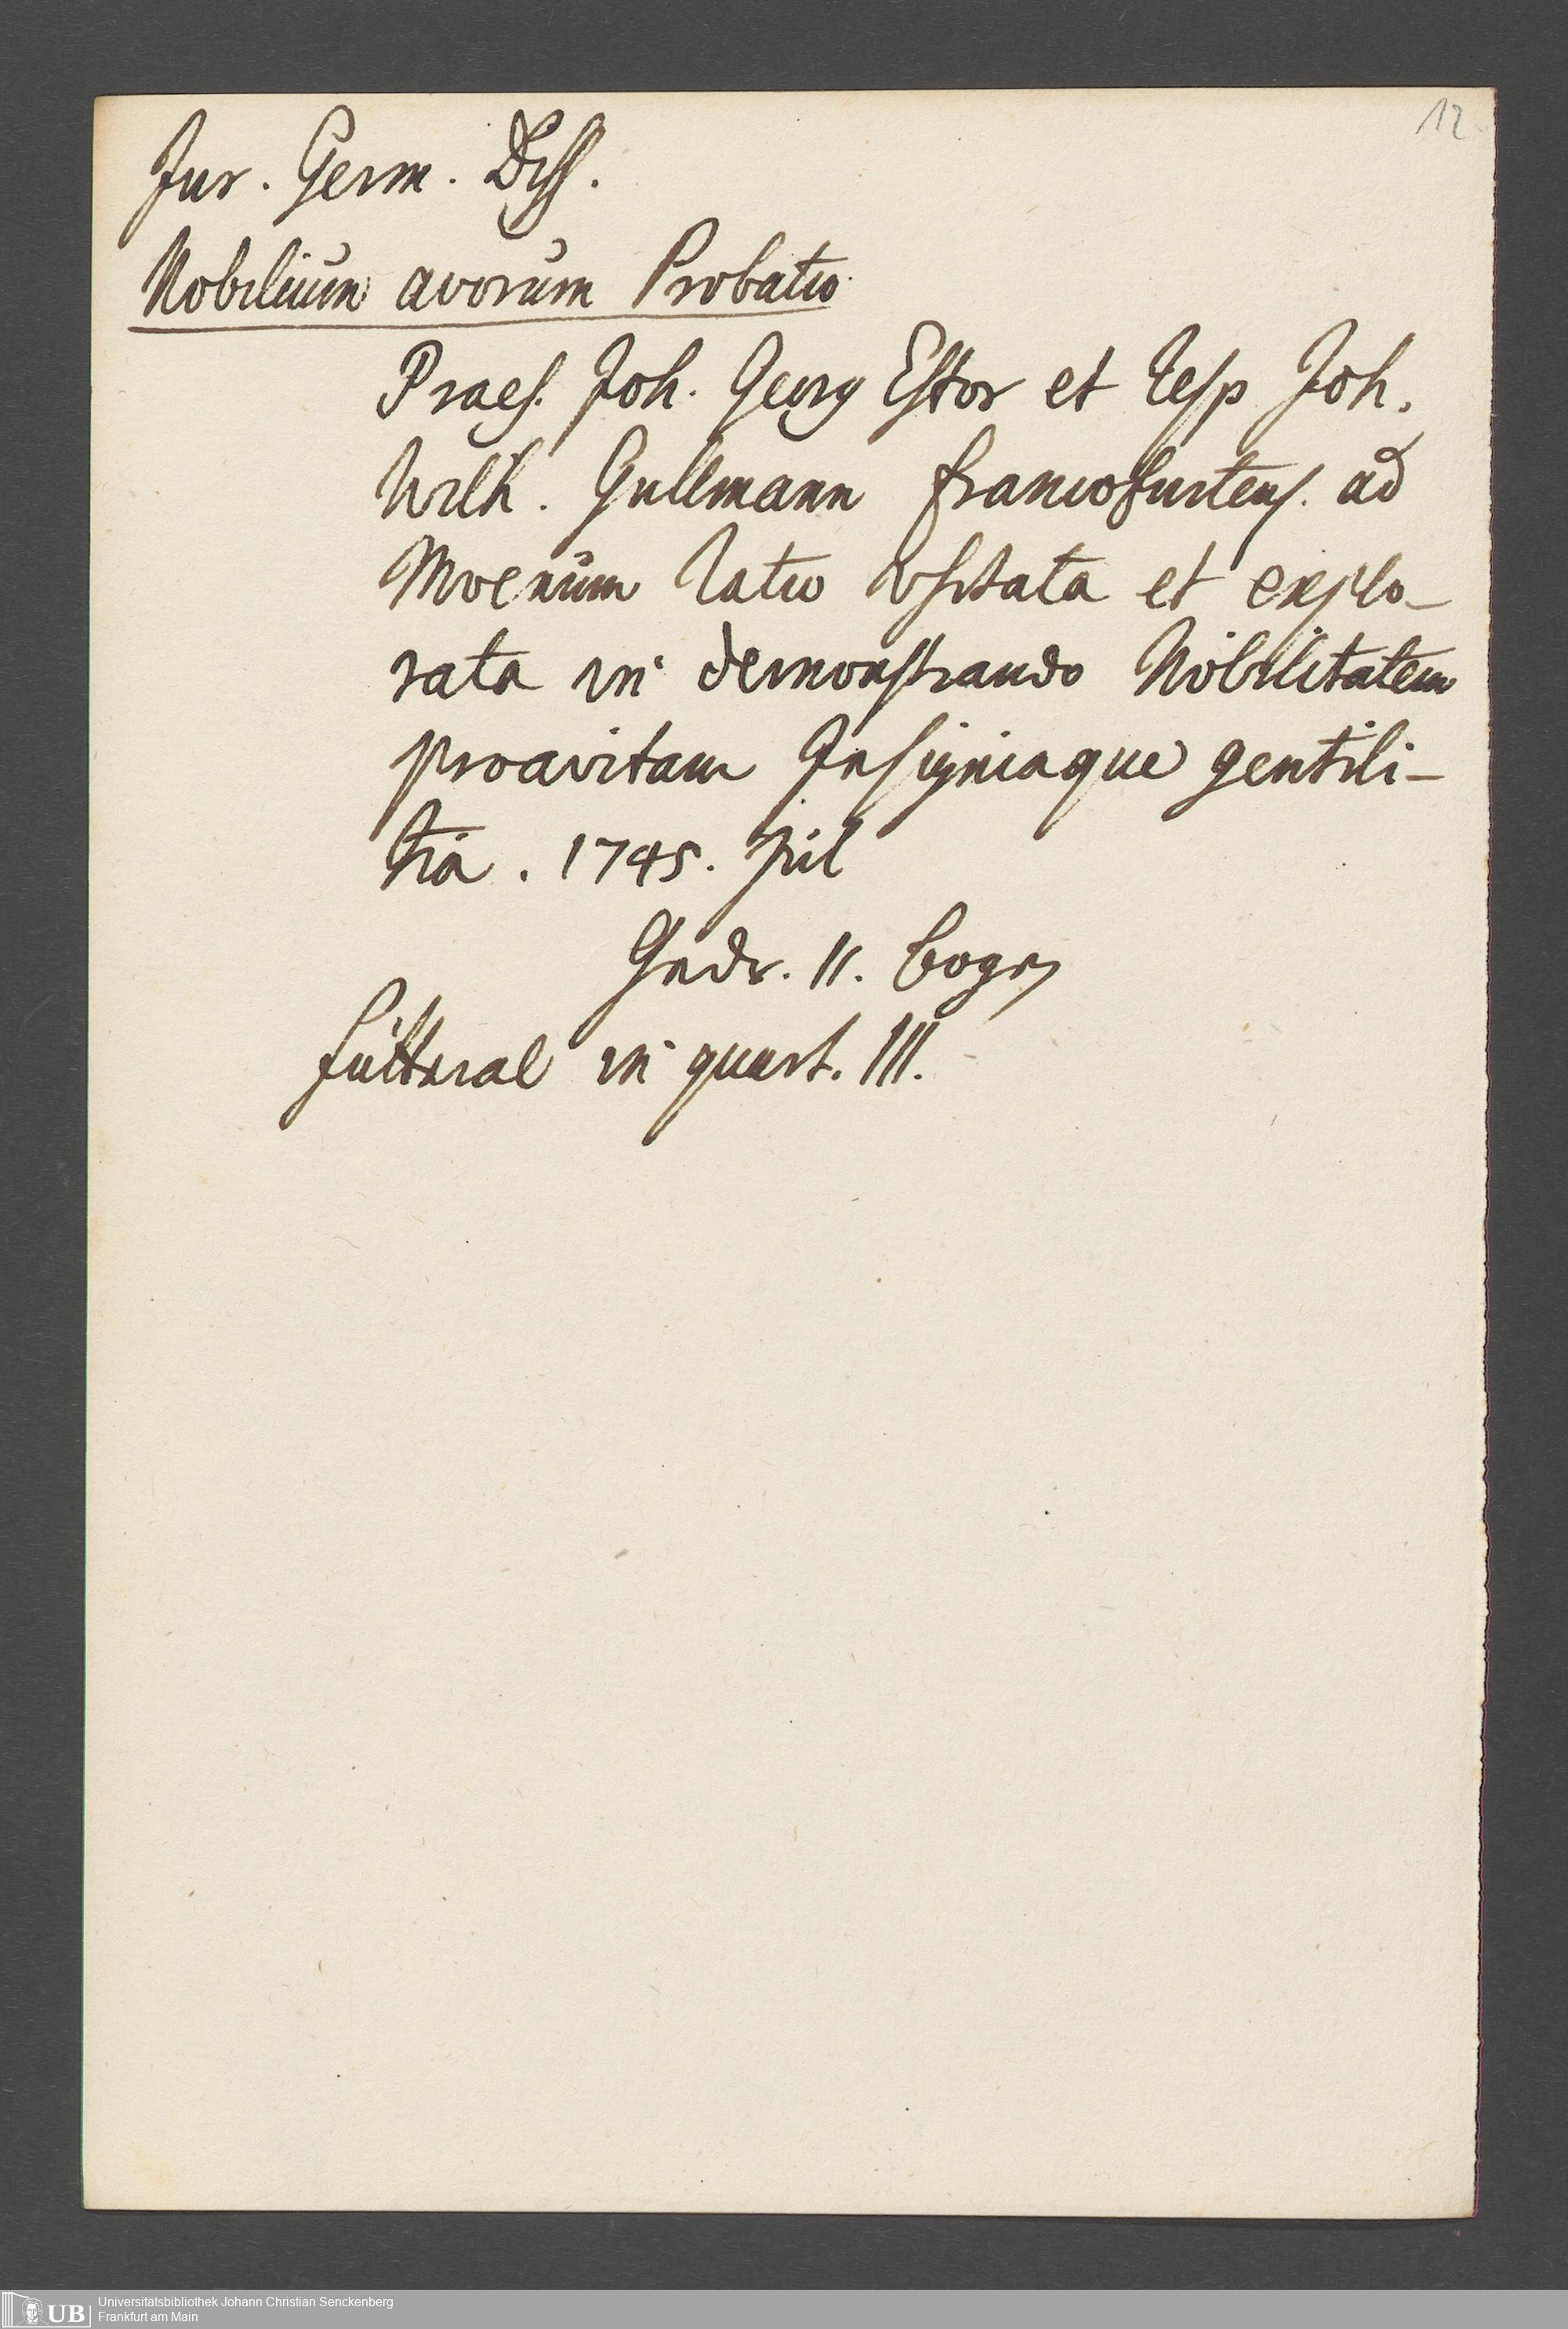 12.
Jur. Germ. Diss.
Nobilium avorum Probatio
Praes. Joh. Georg Estor et Resp Joh.
Wilh. Gullmann francofurtens. ad
Moenum Ratio Vsitata et explo-
rata in demonstrando Nobilitatem
proavitam Insigniaque gentili-
tia. 1745. Jul
Gedr. 11. bogen
fütteral in quart. III.
UB
Universitätsbibliothek Johann Christian Senckenberg
Frankfurt am Main